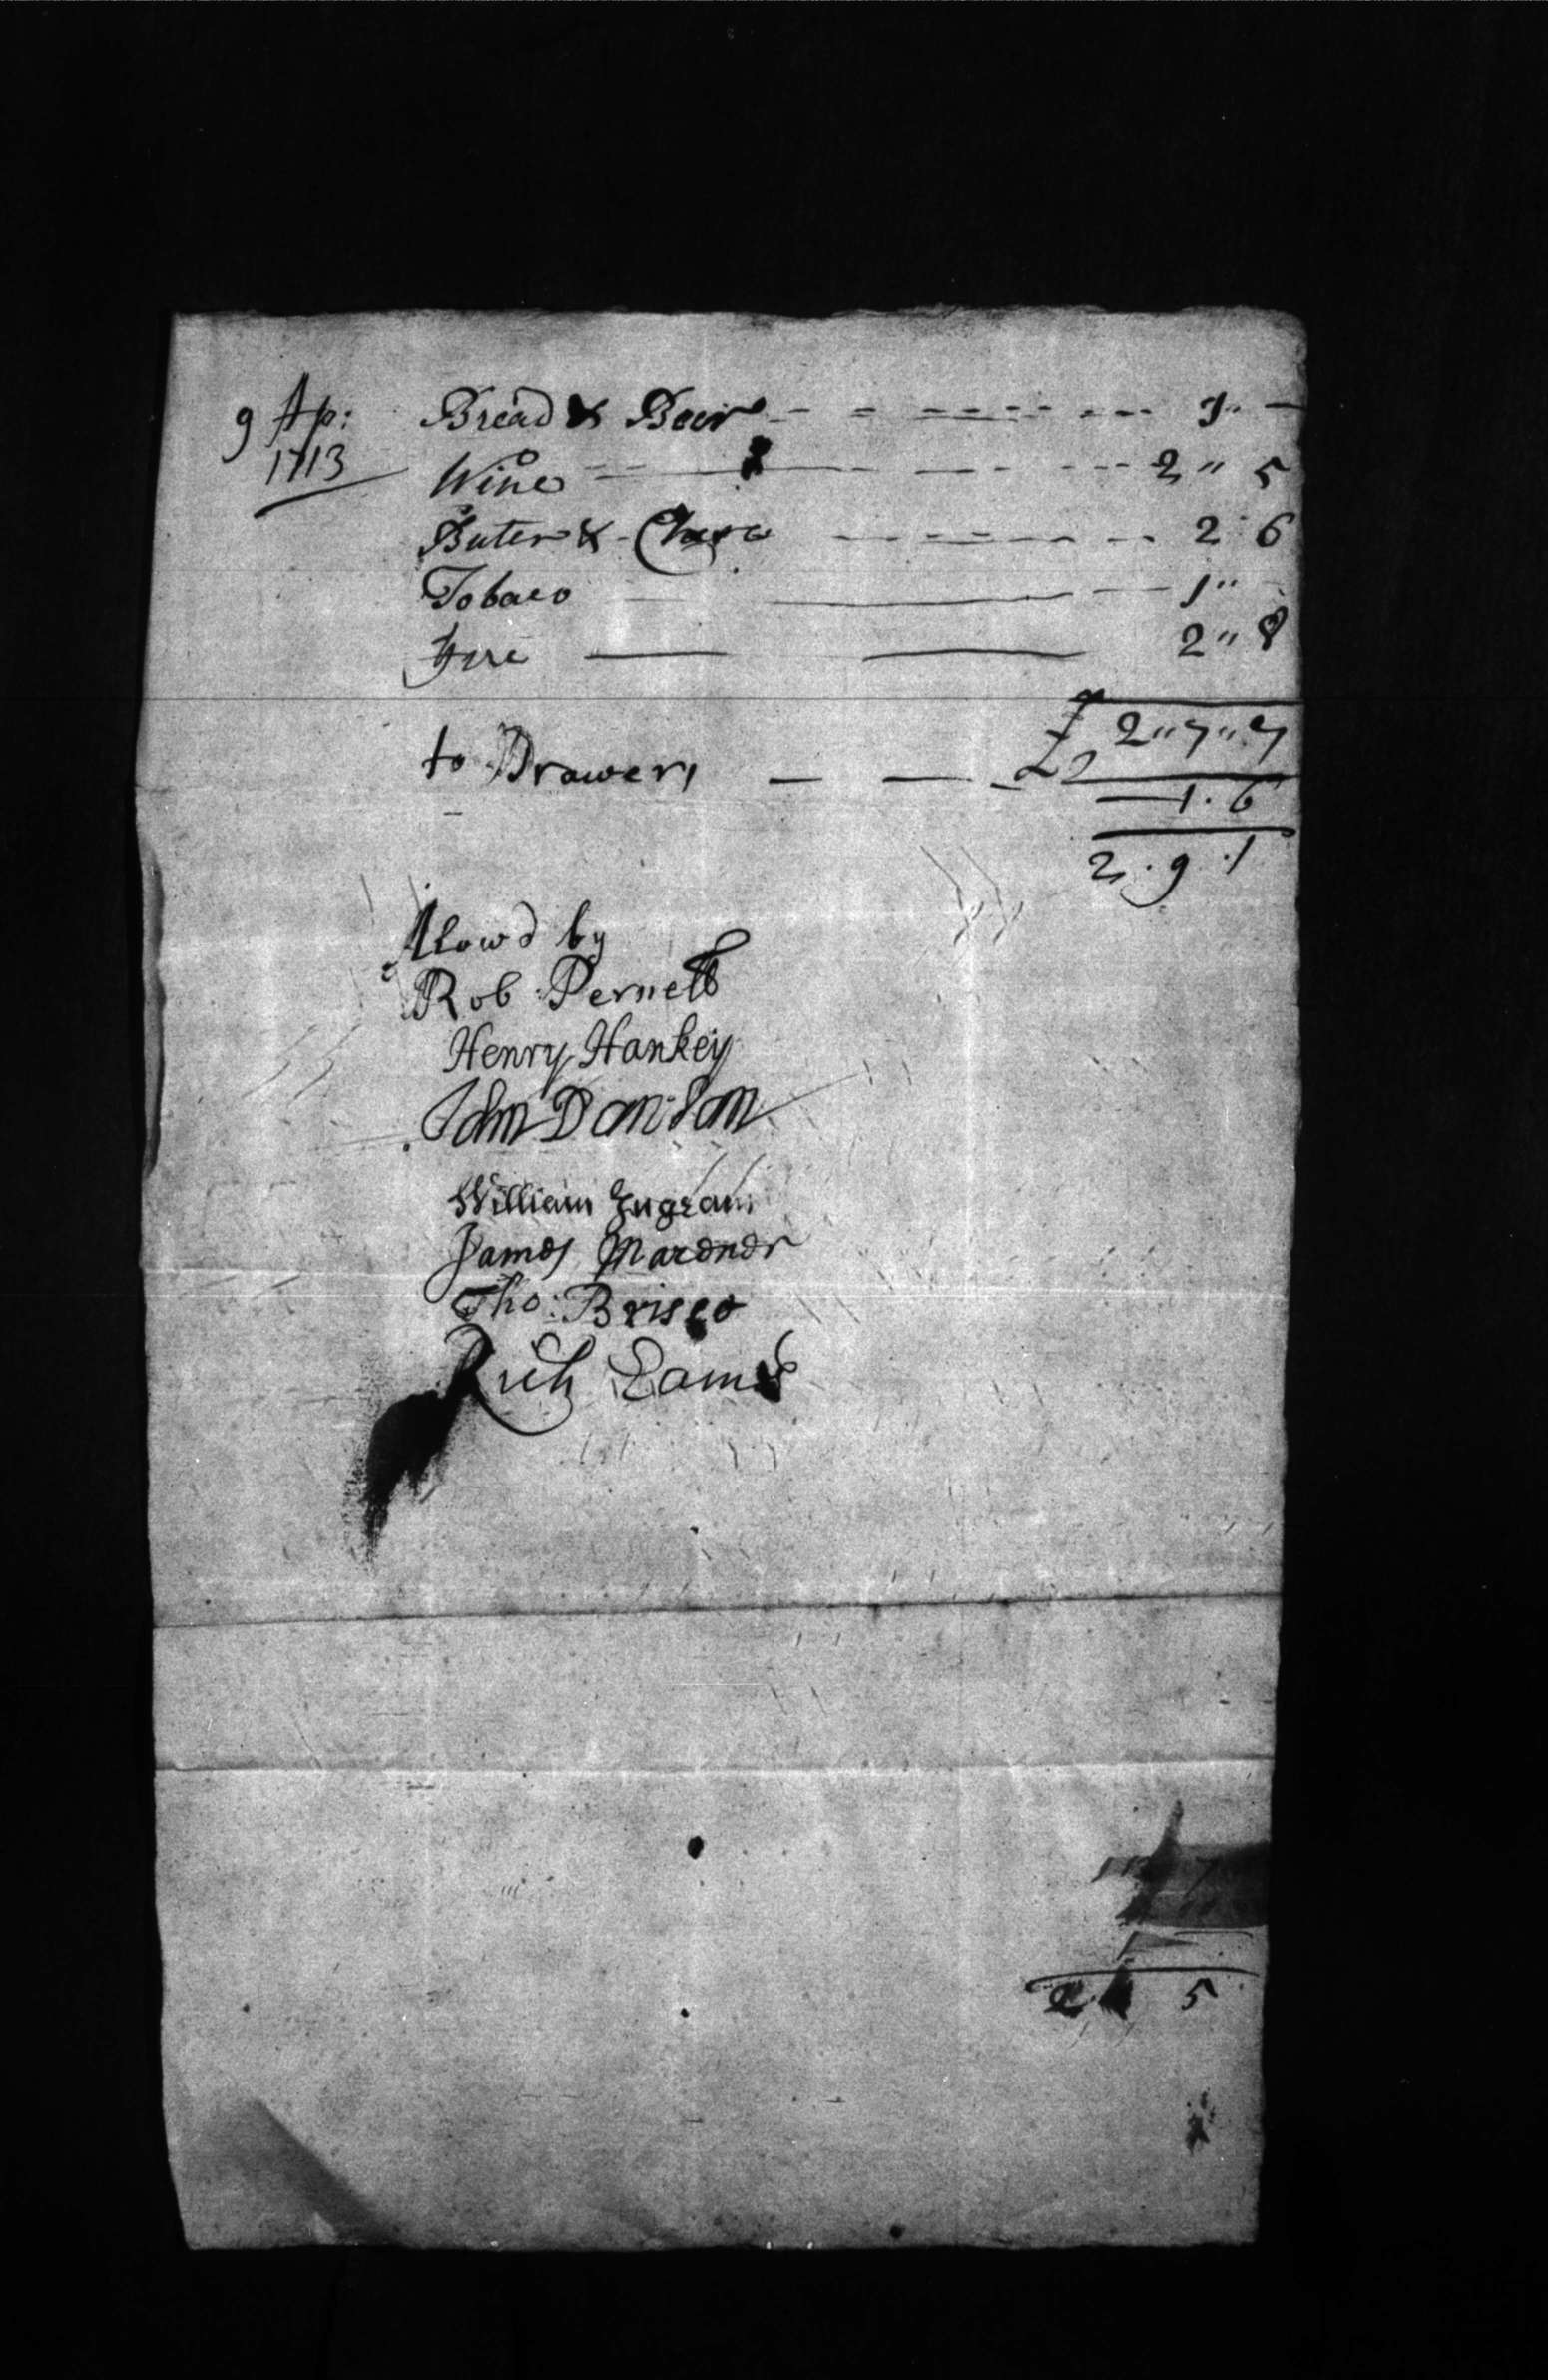 9 Ap: Bread & Beer - - - - - - - 7 " -
1713 Wine - - - - - - 2 " 5
Buter & Chese - - - - - 2 " 6
Tobaco - - - 1 " -
fire - - 2 " 8
£ 2 " 7 " 7
to Drawers - - - 1 . 6
2 . 9 . 1
Alowd by
Rob Pernell
Henry Hankey
John Danson
William Ingram
James Mardner
Tho: Brisco
Rich Eames
2 5